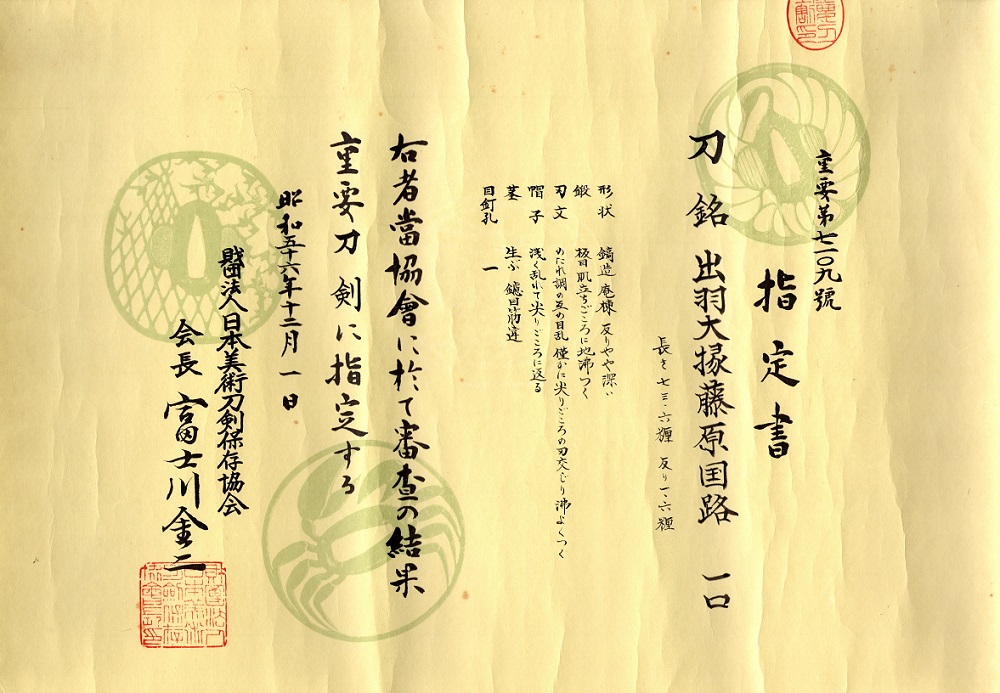 重要第七一〇九號
指定書
刀 銘 出羽大掾藤原国路 一口
長さ 七三・六糎 反り 一・六糎
形状 鎬造 庵棟 反りやや深い
鍛 板目肌立ちごころに地沸つく
刃文 のたれ調の互の目乱 僅かに尖りごころの刃交じり 沸よくつく
帽子 浅く乱れて尖りごころに返る
茎 生ぶ 鑢目筋違
目釘孔 一
右者當協會に於て審査の結果
重要刀剣に指定する
昭和五十六年十二月一日
財団法人日本美術刀剣保存協会
会長 富士川金二